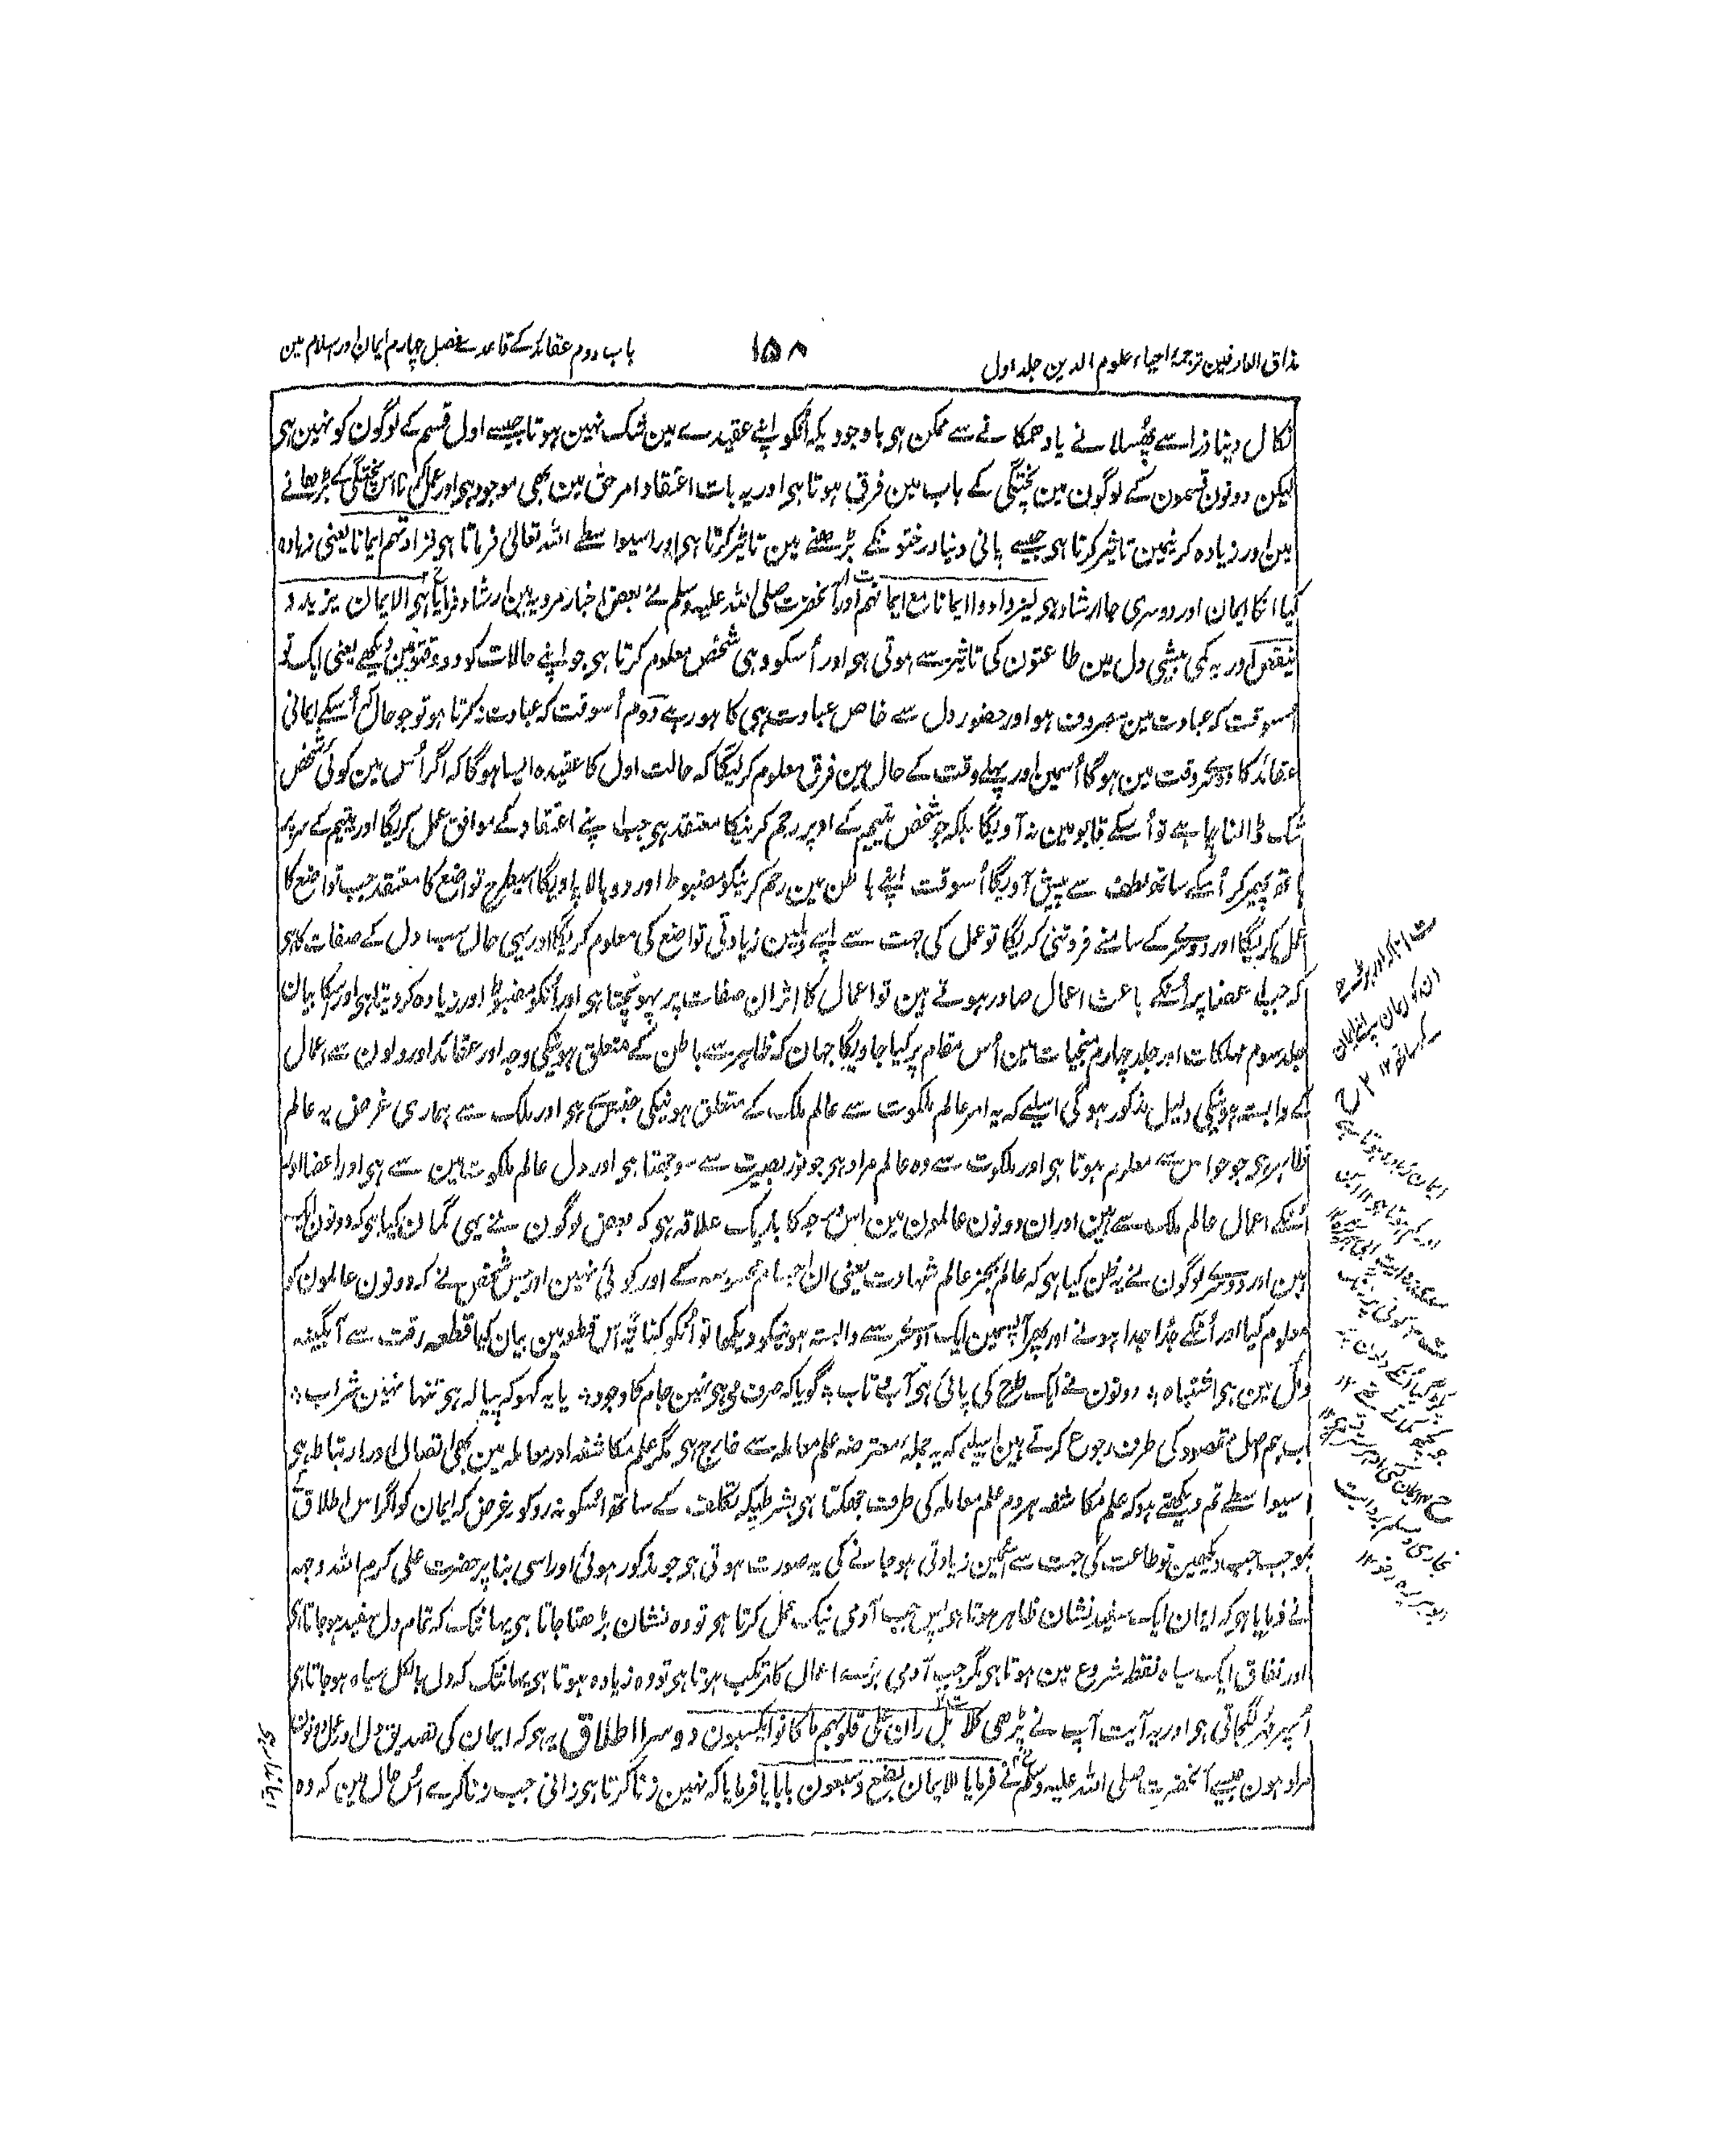 مذاق العارفین ترجمۂ احیاء علوم الدین جلد اول
۱۵۸
باب دوم عقائد کے قاعدے فصل چہارم ایمان اور اسلام مین
نکال دینا ذرا سے پھسلانے یا دھمکانے سے ممکن ہی باوجودیکہ اُنکو اپنے عقیدے مین شک نہین ہوتا جیسے اول قسم کے لوگون کو نہین ہی
لیکن دونون قسمون کے لوگون مین پختگی کے باب مین فرق ہوتا ہی اور یہ بات اعتقاد امر حق مین بھی موجود ہی اور عمل کرنا اس پختگی کے بڑھانے
مین اور زیادہ کرنیمین تاثیر کرتا ہی جیسے پانی دینا درختونکے بڑھنے مین تاثیر کرتا ہی اور اسیواسطے اللہ تعالیٰ فرماتا ہی فزادتهم ایمانا یعنی زیادہ
کیا انکا ایمان اور دوسری جا ارشاد ہی لیزدادوا ایمانا مع ایمانهم اور آنحضرت صلی اللہ علیہ وسلم نے بعض اخبار مرویہ مین ارشاد فرمایا ہی الایمان یزید و
ینقص اور یہ کمی بیشی دل مین طاعتون کی تاثیر سے ہوتی ہی اور اُسکو وہی شخص معلوم کرتا ہی جو اپنے حالات کو دو وقتونمین دیکھے یعنی ایک تو
اُسوقت کہ عبادت مین مصروف ہو اور حضور دل سے خاص عبادت ہی کا ہو رہے دوم اُسوقت کہ عبادت نکرتا ہو تو جو حال کہ اُسکے ایمانی
عقائد کا دوسرے وقت مین ہوگا اُسمین اور پہلے وقت کے حال مین فرق معلوم کرلیگا کہ حالت اول کا عقیدہ ایسا ہوگا کہ اگر اُس مین کوئی شخص
شک ڈالنا چاہے تو اُسکے قابو مین نہ آویگا بلکہ جو شخص یتیم کے اوپر رحم کرنیکا معتقد ہی جب اپنے اعتقاد کے موافق عمل کریگا اور یتیم کے سر پر
ہاتھ پھیر کر اُسکے ساتھ لطف سے پیش آویگا اُسوقت اپنے باطن مین رحم کرنیکو مضبوط اور دوبالا پاویگا اسیطرح تواضع کا معتقد جب تواضع کا
عمل کریگا اور دوسرے کے سامنے فروتنی کریگا تو عمل کی جہت سے اپنے دلمین زیادتی تواضع کی معلوم کریگا اور یہی حال سب دل کے صفات کا ہی
کہ جب اعضا پر اُنکے باعث اعمال صادر ہوتے ہین تو اعمال کا اثر ان صفات پر پہونچتا ہی اور اُنکو مضبوط اور زیادہ کر دیتا ہی اور اسکا بیان
جلد سوم مہلکات اور جلد چہارم منجیات مین اُس مقام پر کیا جاویگا جہان کہ ظاہر سے باطن کے متعلق ہونیکی وجہ اور عقائد اور دلون سے اعمال
کے وابستہ ہونیکی دلیل مذکور ہوگی اسلیے کہ یہ امر عالم ملکوت سے عالم ملک کے متعلق ہونیکی جنس سے ہی اور ملک سے ہماری غرض یہ عالم
ظاہر ہی جو حواس سے معلوم ہوتا ہی اور ملکوت سے وہ عالم مراد ہی جو نور بصیرت سے سوجھتا ہی اور دل عالم ملکوت مین سے ہی اور اعضا اور
اُنکے اعمال عالم ملک سے ہین اور ان دونون عالمون مین اس درجہ کا باریک علاقہ ہی کہ بعض لوگون نے یہی گمان کیا ہی کہ دونون ایک
ہین اور دوسرے لوگون نے یہ ظن کیا ہی کہ عالم بجز عالم شہادت یعنی ان اجسام محسوسہ کے اور کوئی نہین اور جس شخص نے کہ دونون عالمون کو
معلوم کیا اور اُنکے جُدا جدا ہونے اور پھر آپسمین ایک دوسرے سے وابستہ ہونیکو دیکھا تو اُنکو کنایۃً اس قطعہ مین بیان کیا قطعہ رقت سے آبگینہ
و مُل مین ہی اشتباہ ؞ دونون نے ایک طرح کی پائی ہی آب و تاب ؞ گویا کہ صرف می ہی نہین جام کا وجود ؞ یا یہ کہو کہ پیالہ ہی تنہا نہین شراب ؞
اب ہم اصل مقصود کی طرف رجوع کرتے ہین اسلیے کہ یہ جملہ معترضہ علم معاملہ سے خارج ہی مگر علم مکاشفہ اور معاملہ مین بھی اتصال اور ارتباط ہی
اسیواسطے تم دیکھتے ہو کہ علم مکاشفہ ہر دم علم معاملہ کی طرف جھکتا ہی بشرطیکہ تکلف کے ساتھ اُسکو نہ روکو غرض کہ ایمان کو اگر اس اطلاق کے
بموجب جب دیکھین تو طاعت کی جہت سے اُسمین زیادتی ہو جانے کی یہ صورت ہوتی ہی جو مذکور ہوئی اور اسی بنا پر حضرت علی کرم اللہ وجہہ
نے فرمایا ہی کہ ایمان ایک سفید نشان ظاہر ہوتا ہی پس جب آدمی نیک عمل کرتا ہی تو وہ نشان بڑھتا جاتا ہی یہانتک کہ تمام دل سفید ہو جاتا ہی
اور نفاق ایک سیاہ نقطہ شروع مین ہوتا ہی مگر جب آدمی بُرے اعمال کا مرتکب ہوتا ہی تو وہ زیادہ ہوتا ہی یہانتک کہ دل بالکل سیاہ ہو جاتا ہی
اُسپر مُہر لگجاتی ہی اور یہ آیت آپ نے پڑھی کلا بل ران علی قلوبهم ما کانوا یکسبون دوسرا اطلاق یہ ہی کہ ایمان کی تصدیق دل اور عمل دونون
مراد ہون جیسے آنحضرت صلی اللہ علیہ وسلم نے فرمایا الایمان بضع وسبعون بابا یا فرمایا کہ نہین زنا کرتا ہی زانی جب زنا کرے اُس حال مین کہ وہ
ان کو ایمان اپنے ایمان
کے ساتھ ۱۲
ایمان زیادہ ہوتا ہی
اور کم ہوتا ہی
بخاری و مسلم بروایت
ابو ہریرہ رض ۱۲